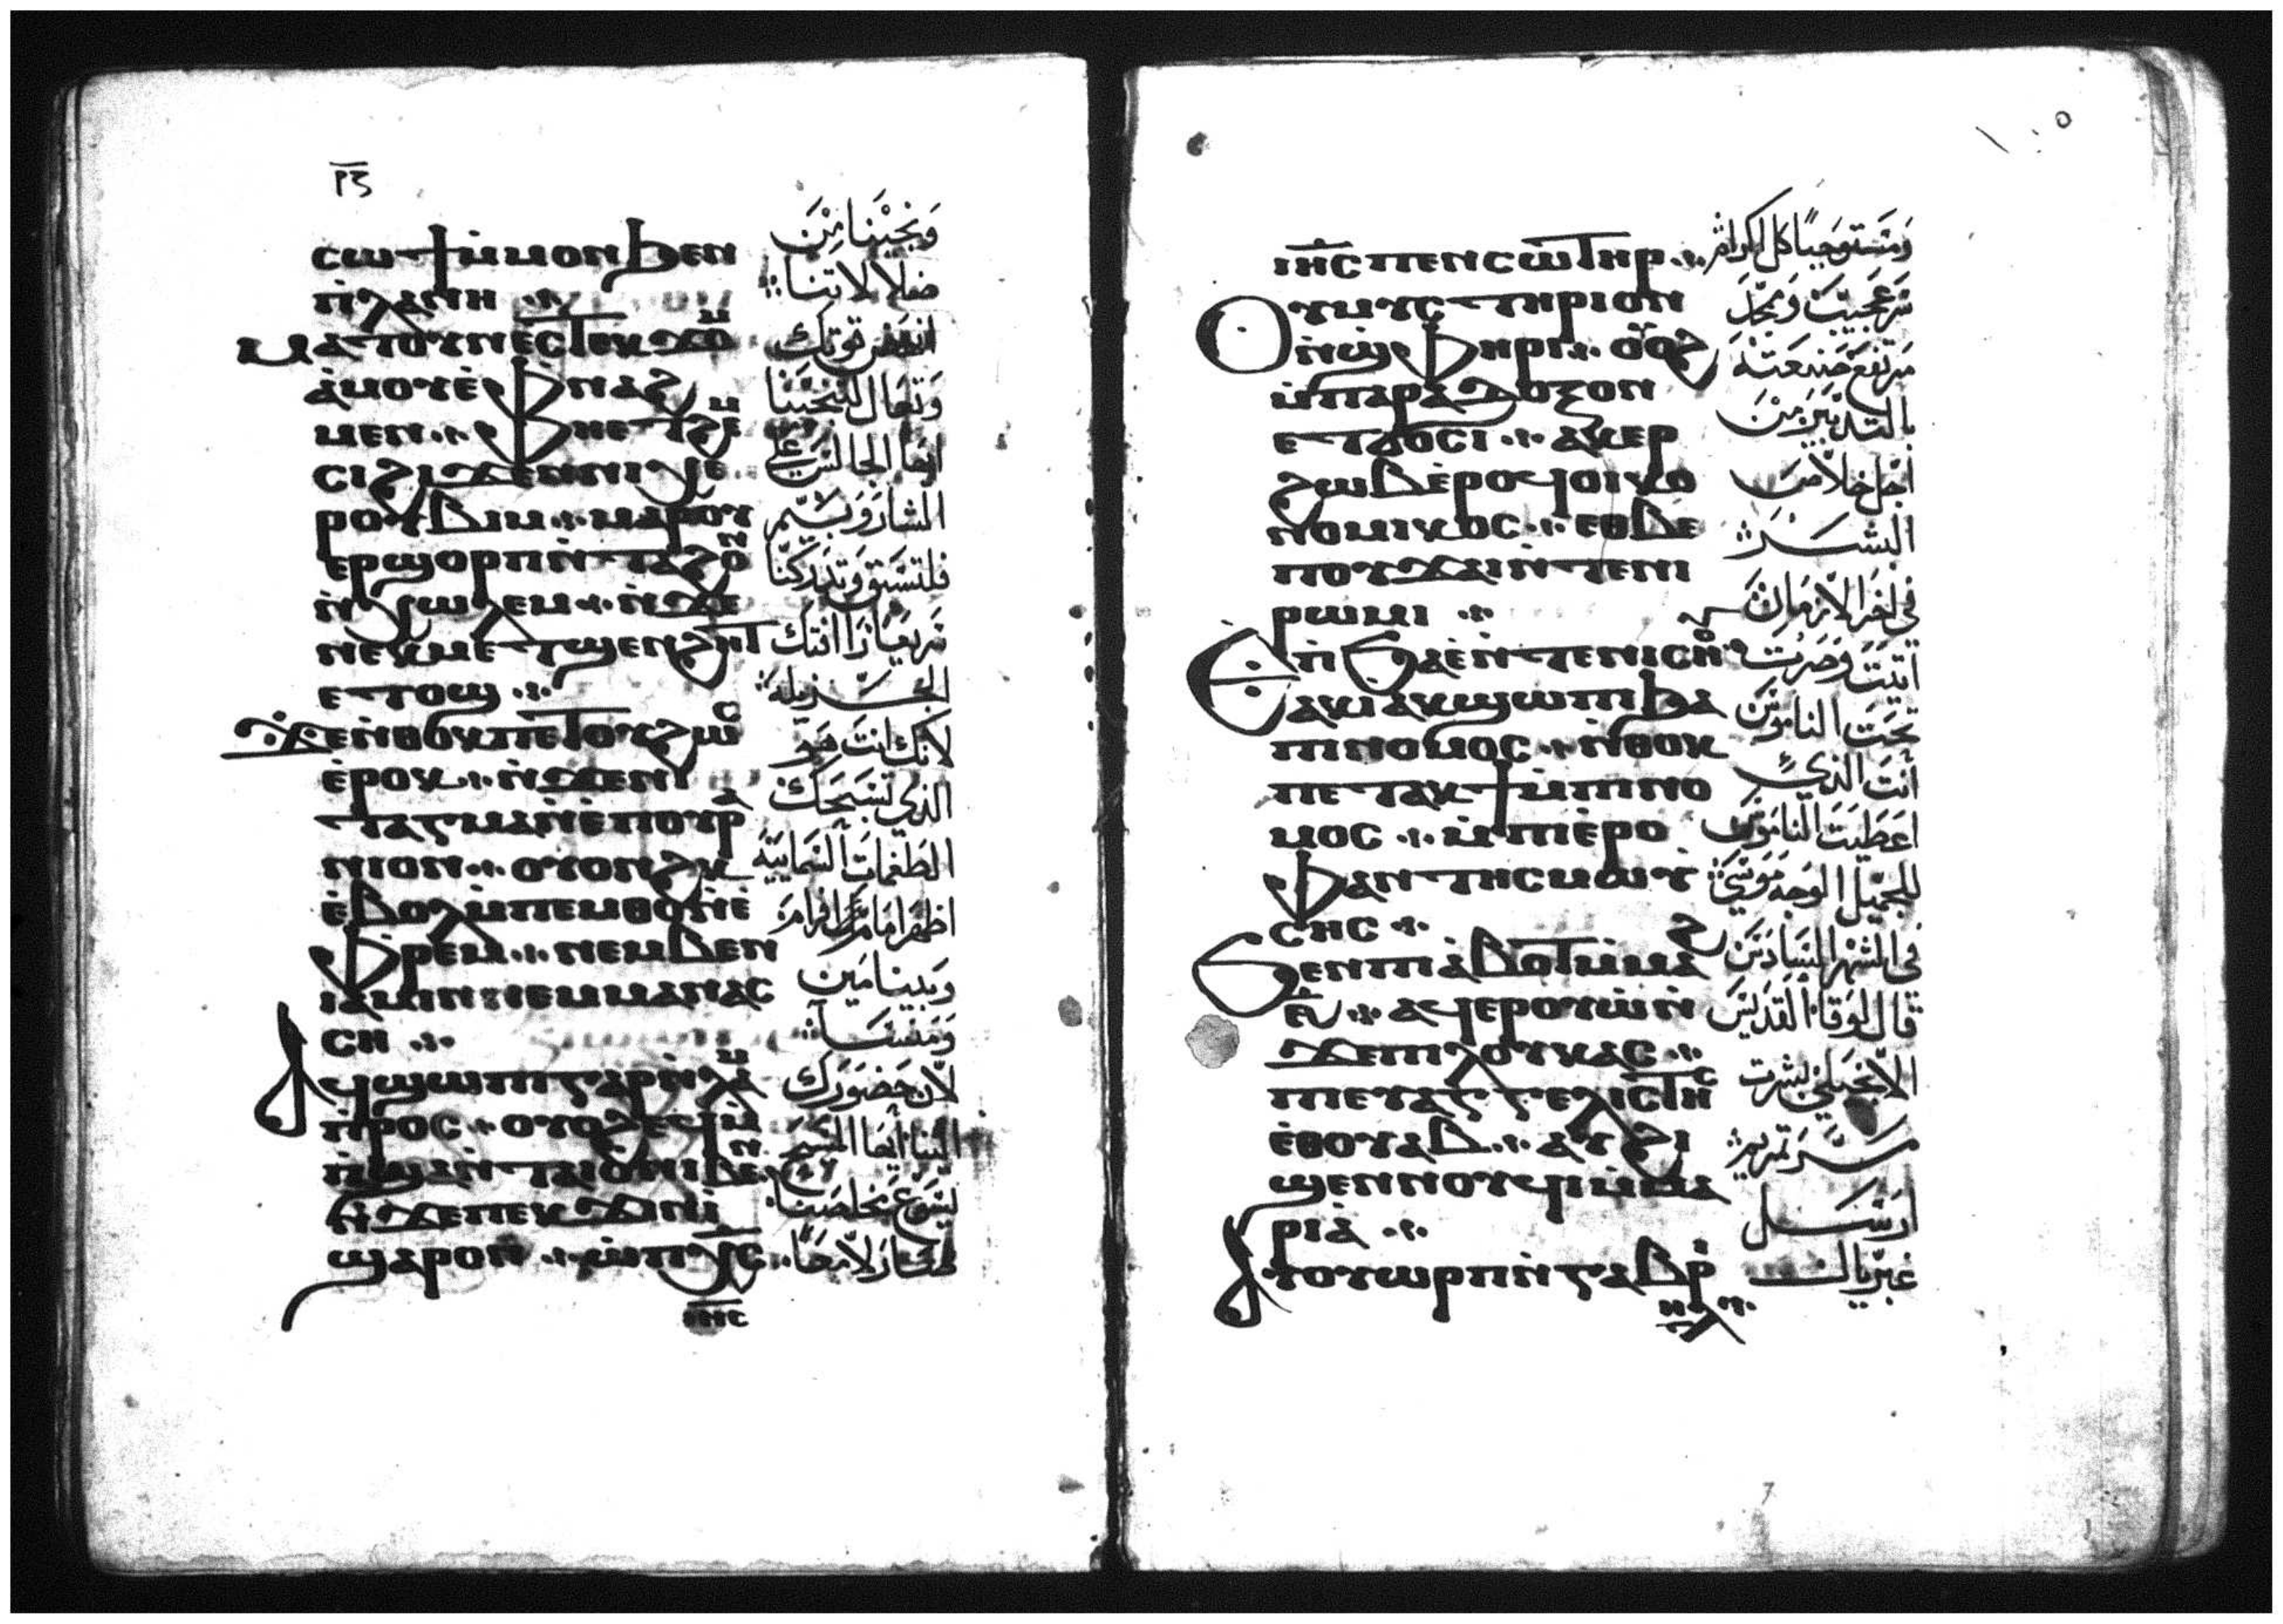 ⲣⲍ
ⲥⲱϯ ⲙ̇ⲙⲟⲛ ϧⲉⲛ
ⲡⲓⲗⲁⲛⲏ
ⲙⲁⲧⲟⲩⲛⲉⲥ ⲧⲉⲕϫⲟⲙ
ⲁ̀ⲙⲟⲩ ⲉ̀ⲫⲛⲁϩ
ⲙⲉⲛ ⲫⲏⲉⲧϩⲉⲙ
ⲥⲓ ϩⲓϫⲉⲛ ⲛⲓⲭⲉ
ⲣⲟⲩⲃⲓⲙ ⲙⲁⲣⲟⲩ
ⲉⲣϣⲟⲣⲡ ⲛ̀ⲧⲁϩⲟⲛ
ⲛ̀ⲭⲱⲗⲉⲙ ⲛ̀ϫⲉ
ⲛⲉⲕⲙⲉⲧϣⲉⲛϩⲏⲧ
ⲉⲧⲟϣ
ϫⲉ ⲛ̀ⲑⲟⲕ ⲡⲉⲧⲟⲩϩⲱⲥ
ⲉ̀ⲣⲟⲕ ⲛ̀ϫⲉ ⲛⲓ
ⲧⲁⲅⲙⲁ ⲛ̀ⲉ̀ⲡⲟⲩⲣⲁ
ⲛⲓⲟⲛ ⲟⲩⲟⲛϩⲕ
ⲉ̀ⲃⲟⲗ ⲙ̀ⲡⲉⲙⲑⲟ ⲛ̀ⲉ
ⲫⲣⲉⲙ ⲛⲉⲙ ⲃⲉⲛ
ⲓⲁⲙⲓⲛ ⲛⲉⲙ ⲙⲁⲛⲁⲥ
ⲥⲏ
ⲁϥϣⲱⲡⲓ ⲅⲁⲣ ⲛ̀ⲗⲁⲙ
ⲡⲣⲟⲥ ⲟⲩⲟϩ ⲉϥⲙ̀
ⲡϣⲁ ⲛ̀ⲧⲁⲓⲟ ⲛⲓⲃⲉⲛ
ⲛ̀ϫⲉ ⲡⲉⲕϫⲓⲛⲓ̀
ϣⲁⲣⲟⲛ ⲱ̀ ⲡⲭ̅ⲥ̅
ⲓⲏⲥ
وتنجينا من
ضلالاتنا
انهض قوتك
وتعال لتنجينا
ايها الجالس على
الشاروبيم
فلتسبق وتدركنا
سريعا رافتك
الجزيله
لانك انت هو
الذي تسبحك
الطغمات السماييه
اظهر امام افرام
وبنيامين
ومنسا
لان حضورك
الينا ايها المسيح
يسوع مخلصنا
صار لامعا
ⲓⲏⲥ ⲡⲉⲛⲥⲱⲧⲏⲣ
ⲟⲩⲙⲩⲥⲧⲏⲣⲓⲟⲛ
ⲛ̀ϣⲫⲏⲣⲓ ⲟⲩⲟϩ
ⲙ̀ⲡⲁⲣⲁⲇⲟⲝⲟⲛ
ⲉⲧϭⲟⲥⲓ ⲁⲕⲉⲣ
ϩⲱⲃ ⲉ̀ⲣⲟϥ ⲟⲓⲕⲟ
ⲛⲟⲙⲓⲕⲟⲥ ⲉⲑⲃⲉ
ⲡⲟⲩϫⲁⲓ ⲛ̀ⲧⲉ ⲛⲓ
ⲣⲱⲙⲓ
ⲉⲡⲓϧⲁⲉ̀ ⲛ̀ⲧⲉ ⲛⲓⲥⲏⲟⲩ
ⲁⲕⲓ̀ ⲁⲕϣⲱⲡⲓ ϧⲁ
ⲡⲓⲛⲟⲙⲟⲥ ⲛ̀ⲑⲟⲕ
ⲡⲉⲧⲁⲕϯ ⲙ̀ⲡⲓⲛⲟ
ⲙⲟⲥ ⲙ̀ⲡⲓⲉ̀ⲣⲟ
ⲫⲁⲛⲧⲏⲥ ⲙⲱⲩ̀
ⲥⲏⲥ
ϧⲉⲛ ⲡⲓⲁ̀ⲃⲟⲧ ⲙ̀ⲙⲁϩ
ⲋ̅ ⲁϥⲉⲣⲟⲩⲱ ⲛ̀
ϫⲉ ⲡⲓⲗⲟⲩⲕⲁⲥ
ⲡⲓⲉⲩⲁⲅⲅⲉⲗⲓⲥⲧⲏⲥ
ⲉ̀ⲑⲟⲩⲁⲃ ⲁⲩϩⲓ
ϣⲉⲛⲛⲟⲩϥⲓ ⲙ̀ⲙⲁ
ⲣⲓⲁ̀
ⲁⲩⲟⲩⲱⲣⲡ ⲛ̀ⲅⲁⲃⲣⲓ
ⲏⲗ
ومستوجبا كل اكرام
سر عجيب وممجد
مرتفع صنعته
بالتدبير من
اجل خلاص
البشر
في اخر الازمان
اتيت وصرت
تحت الناموس
انت الذي
اعطيت الناموس
للجميل الوجه موسي
في الشهر السادس
قال لوقا القديس
الانجيلي بشرت
مريم
ارسل
غبريال